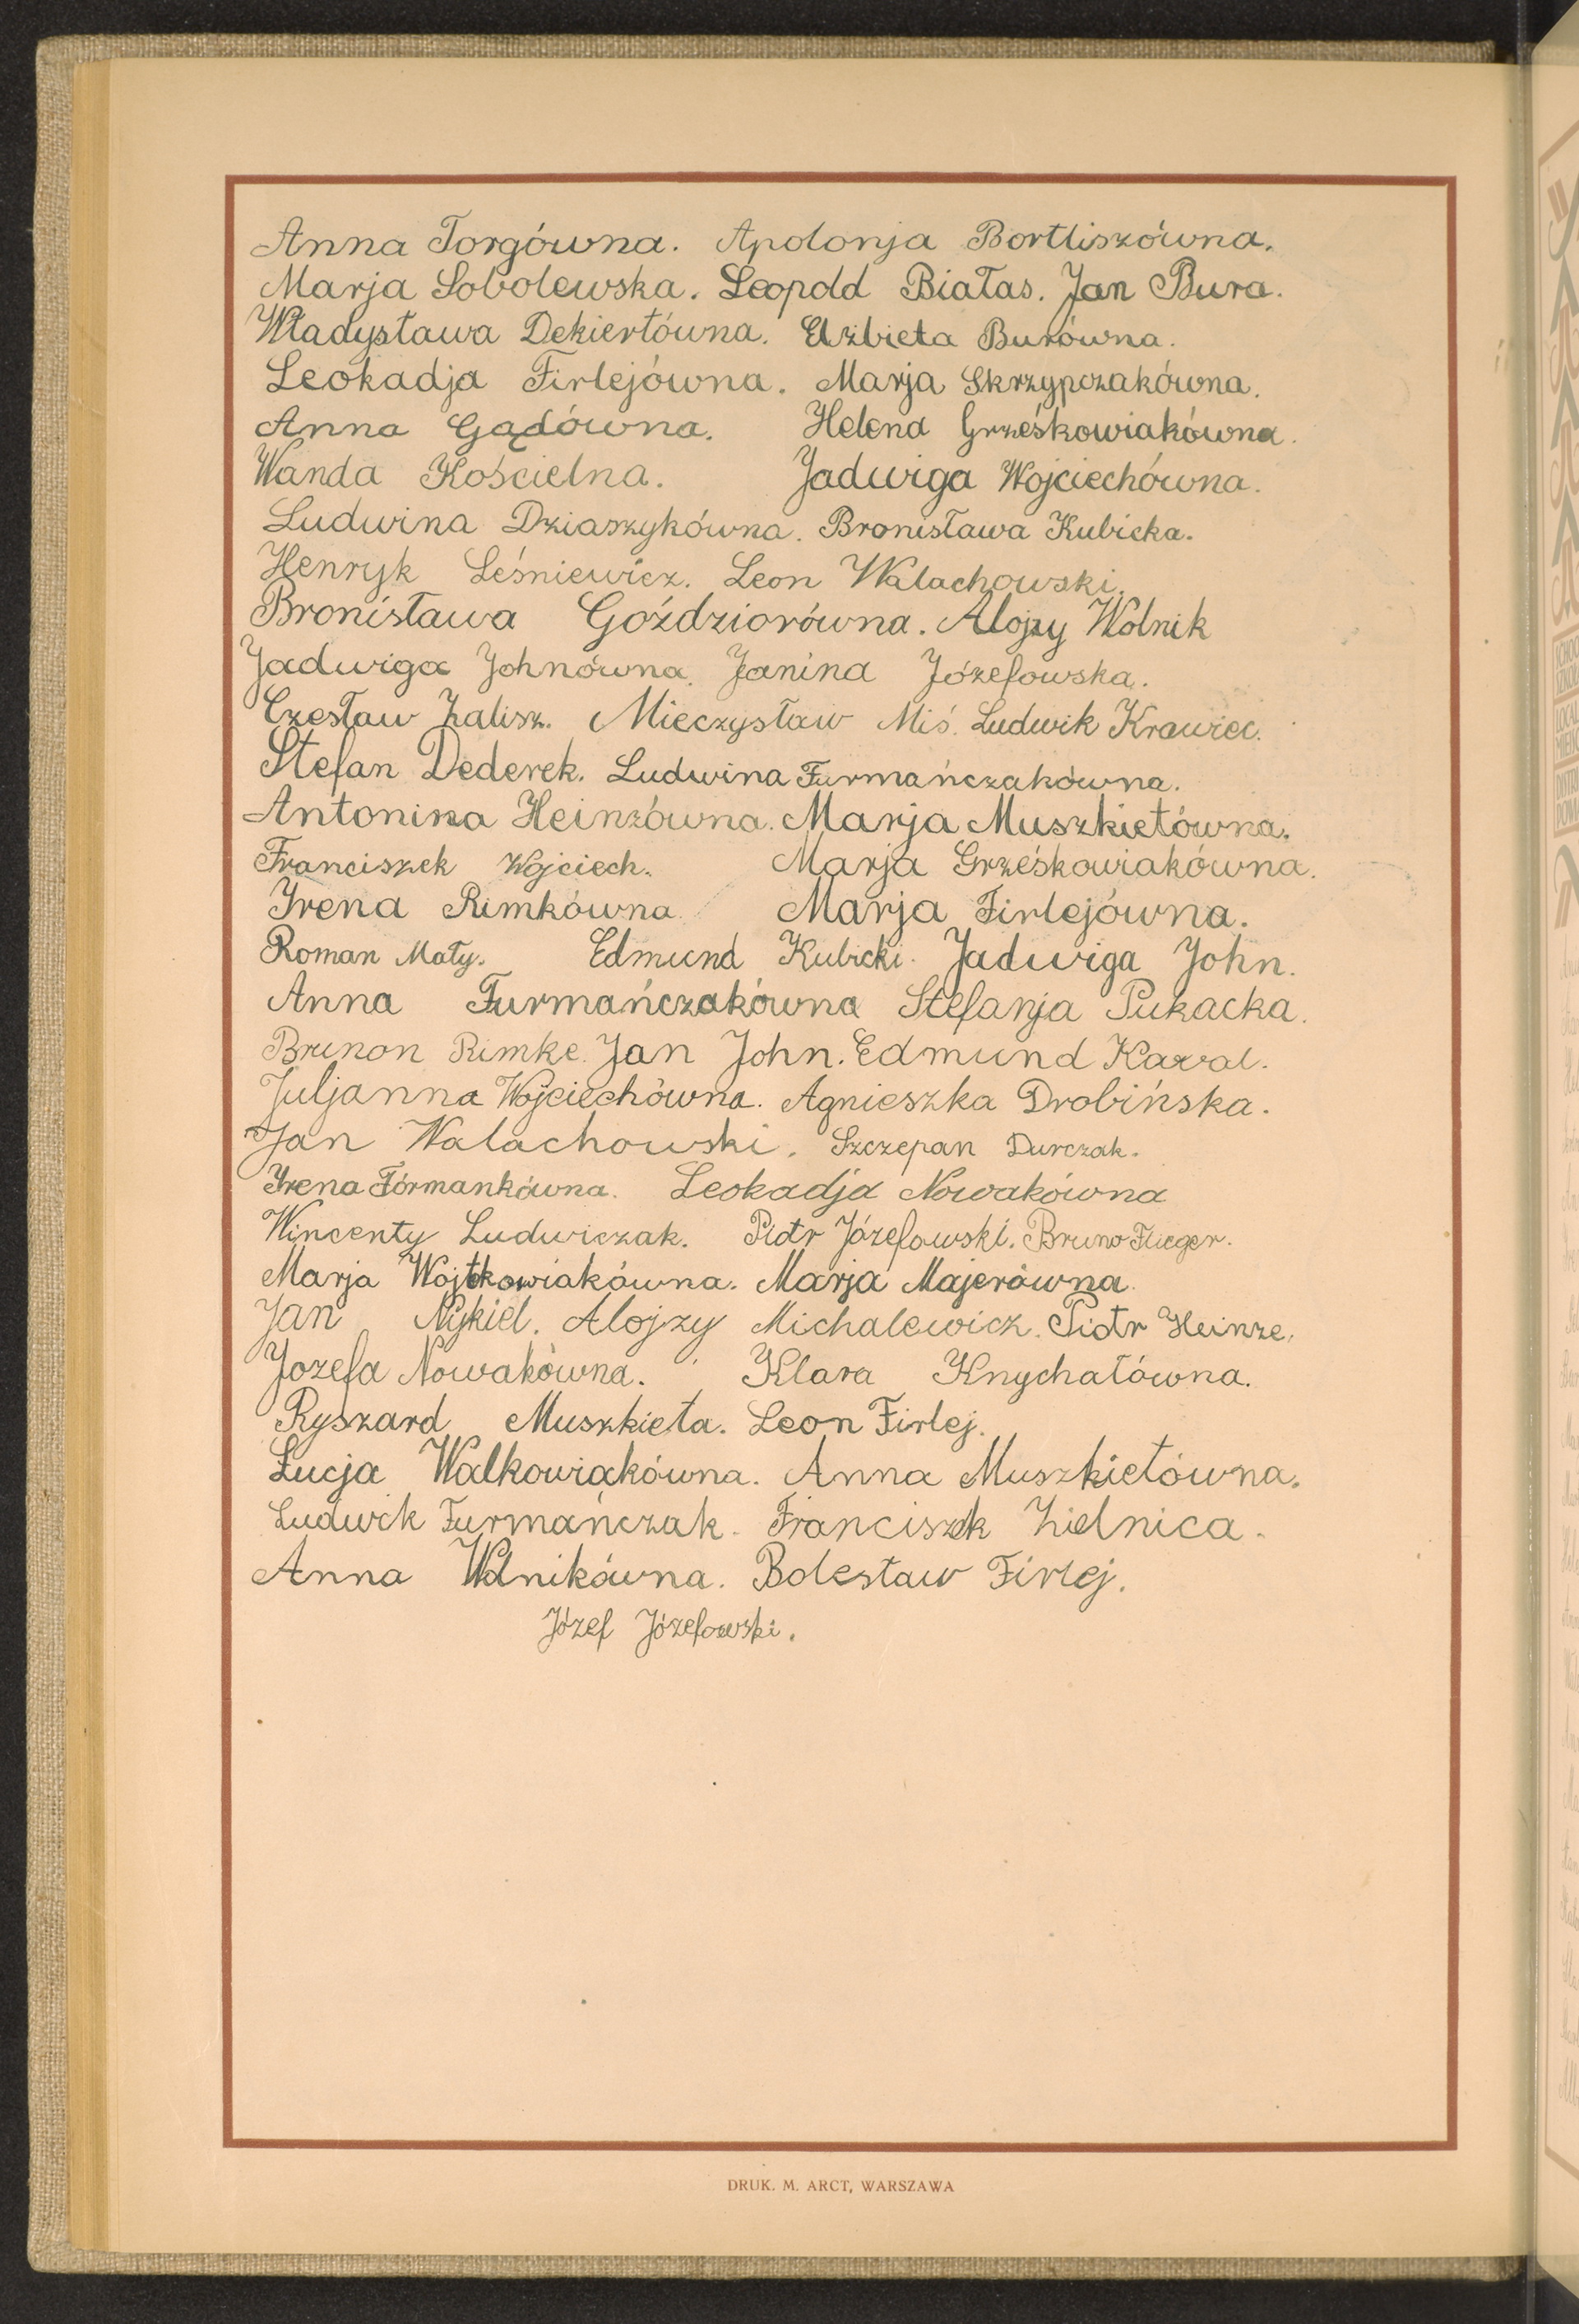 Anna Torgówna. Apolonja Bortliszówna.
Marja Sobolewska. Leopold Białas. Jan Bura.
Władysława Dekiertówna. Elżbieta Burówna.
Leokadja Firlejówna. Marja Skrzypczakówna.
Anna Gądówna. Helena Grześkowiakówna.
Wanda Kościelna. Jadwiga Wojciechówna.
Ludwina Dziaszykówna. Bronisława Kubicka.
Henryk Leśniewicz. Leon Walachowski.
Bronisława Goździorówna. Alojzy Wolnik
Jadwiga Johnówna. Janina Józefowska.
Czesław Kalisz. Mieczysław Miś. Ludwik Krawiec.
Stefan Dederek. Ludwina Furmańczakówna.
Antonina Heinzówna. Marja Muszkietówna.
Franciszek Wojciech. Marja Grześkowiakówna.
Irena Rimkówna. Marja Firlejówna.
Roman Mały. Edmund Kubicki. Jadwiga John.
Anna Furmańczakówna Stefanja Pukacka.
Brunon Rimke. Jan John. Edmund
Juljanna Wojciechówna. Agnieszka Drobińska.
Jan Walachowski. Szczepan Durczak.
Irena Fórmankówna. Leokadja Nowakówna
Wincenty Ludwiczak. Piotr Józefowski. Bruno Flieger.
Marja Wojtkowiakówna. Marja Majerówna.
Jan Nykiel. Alojzy Michalewicz. Piotr Heinze.
Jozefa Nowakówna. Klara Knychałówna.
Ryszard Muszkieta. Leon Firlej.
Łucja Walkowiakówna. Anna Muszkietówna.
Ludwik Furmańczak. Franciszek Zielnica.
Anna Wolnikówna. Bolesław Firlej.
Józef Józefowski.
DRUK. M. ARCT, WARSZAWA